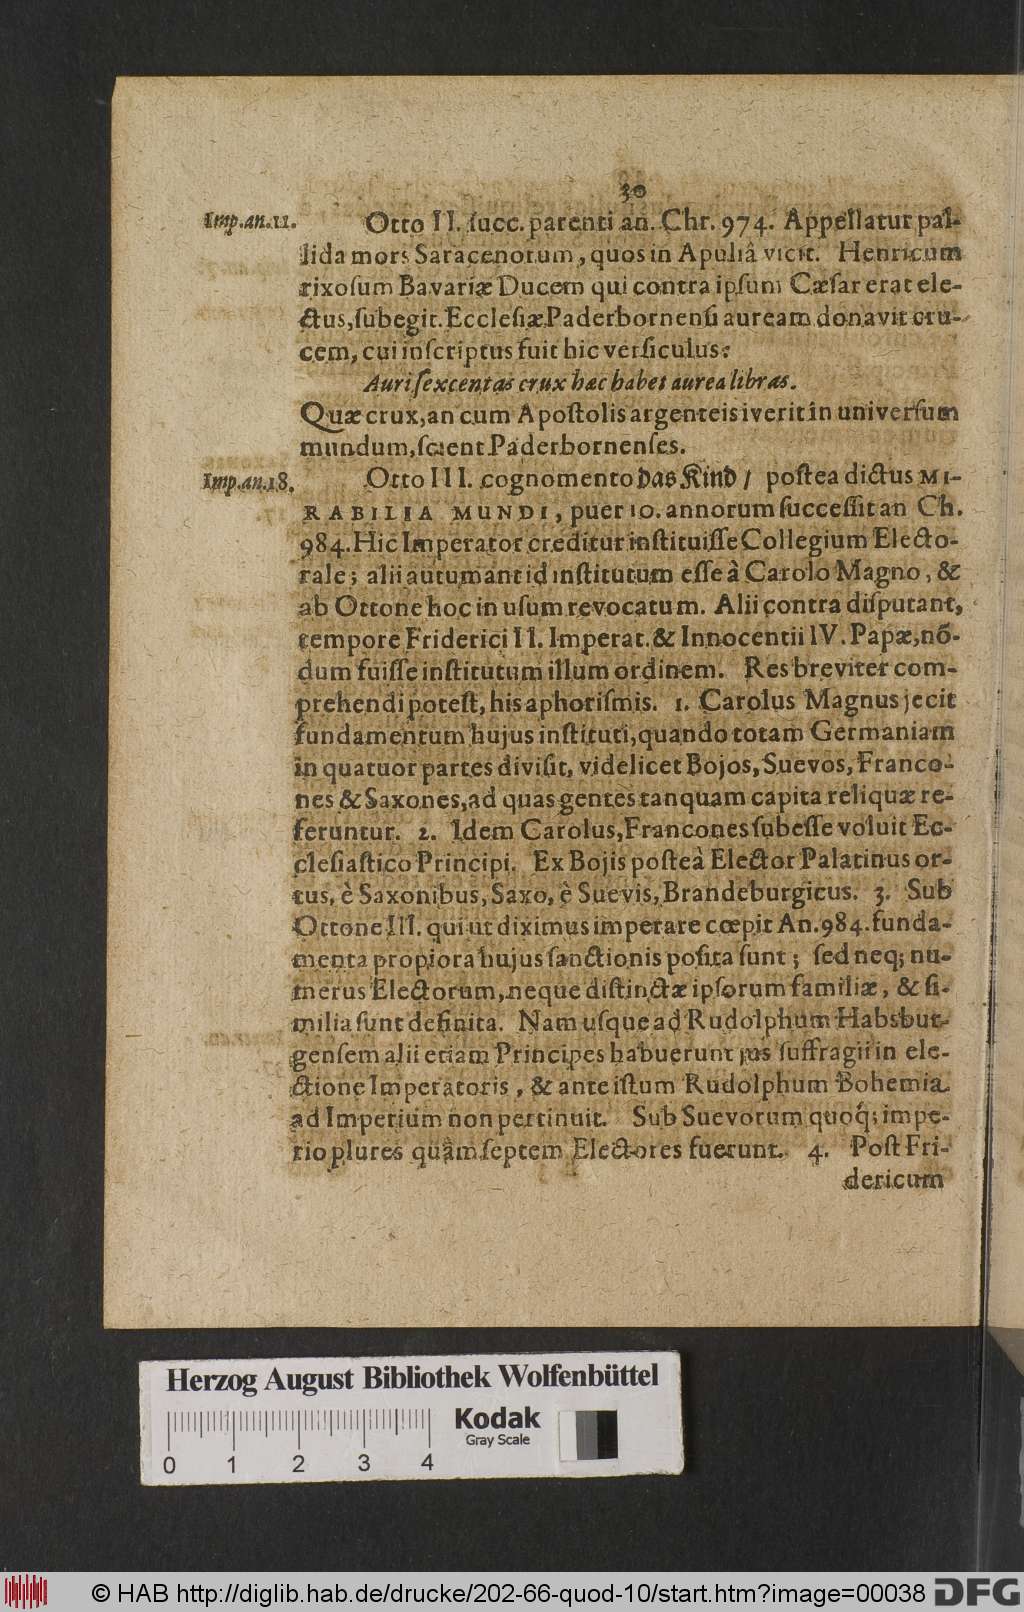 30
Imp.an.11. Otto II. ſucc. parenti an. Chr. 974. Appellatur pal-
lida mors Saracenorum, quos in Apuliâ vicit. Henricum
rixoſum Bavariæ Ducem qui contra ipſum Cæſar erat ele-
ctus, ſubegit. Eccleſiæ Paderbornenſi auream donavit cru-
cem, cui inſcriptus fuit hic verſiculus:
Auri ſexcentas crux hæc habet aurea libras.
Quæ crux, an cum Apoſtolis argenteis iverit in univerſum
mundum, ſcient Paderbornenſes.
Imp.an.18. Otto III. cognomento das Kind / poſtea dictus MI-
RABILIA MUNDI, puer 10. annorum ſucceſſit an Ch.
984. Hic Imperator creditur inſtituiſſe Collegium Electo-
rale; alii autumant id inſtitutum eſſe à Carolo Magno, &
ab Ottone hoc in uſum revocatum. Alii contra diſputant,
tempore Friderici II. Imperat. & Innocentii IV. Papæ, nõ-
dum fuiſſe inſtitutum illum ordinem. Res breviter com-
prehendi poteſt, his aphoriſmis. 1. Carolus Magnus jecit
fundamentum hujus inſtituti, quando totam Germaniam
in quatuor partes diviſit, videlicet Bojos, Suevos, Franco-
nes & Saxones, ad quas gentes tanquam capita reliquæ re-
feruntur. 2. Idem Carolus, Francones ſubeſſe voluit Ec-
cleſiaſtico Principi. Ex Bojis poſteà Elector Palatinus or-
tus, è Saxonibus, Saxo, è Suevis, Brandeburgicus. 3. Sub
Ottone III. qui ut diximus imperare cœpit An. 984. funda-
menta propiora hujus ſanctionis poſita ſunt; ſed neq; nu-
merus Electorum, neque diſtinctæ ipſorum familiæ, & ſi-
milia ſunt definita. Nam uſque ad Rudolphum Habsbur-
genſem alii etiam Principes habuerunt jus ſuffragii in ele-
ctione Imperatoris, & ante iſtum Rudolphum Bohemia
ad Imperium non pertinuit. Sub Suevorum quoq; impe-
rio plures quàm ſeptem Electores fuerunt. 4. Poſt Fri-
dericum
Herzog August Bibliothek Wolfenbüttel
Kodak
Gray Scale
0 1 2 3 4
© HAB http://diglib.hab.de/drucke/202-66-quod-10/start.htm?image=00038
DFG